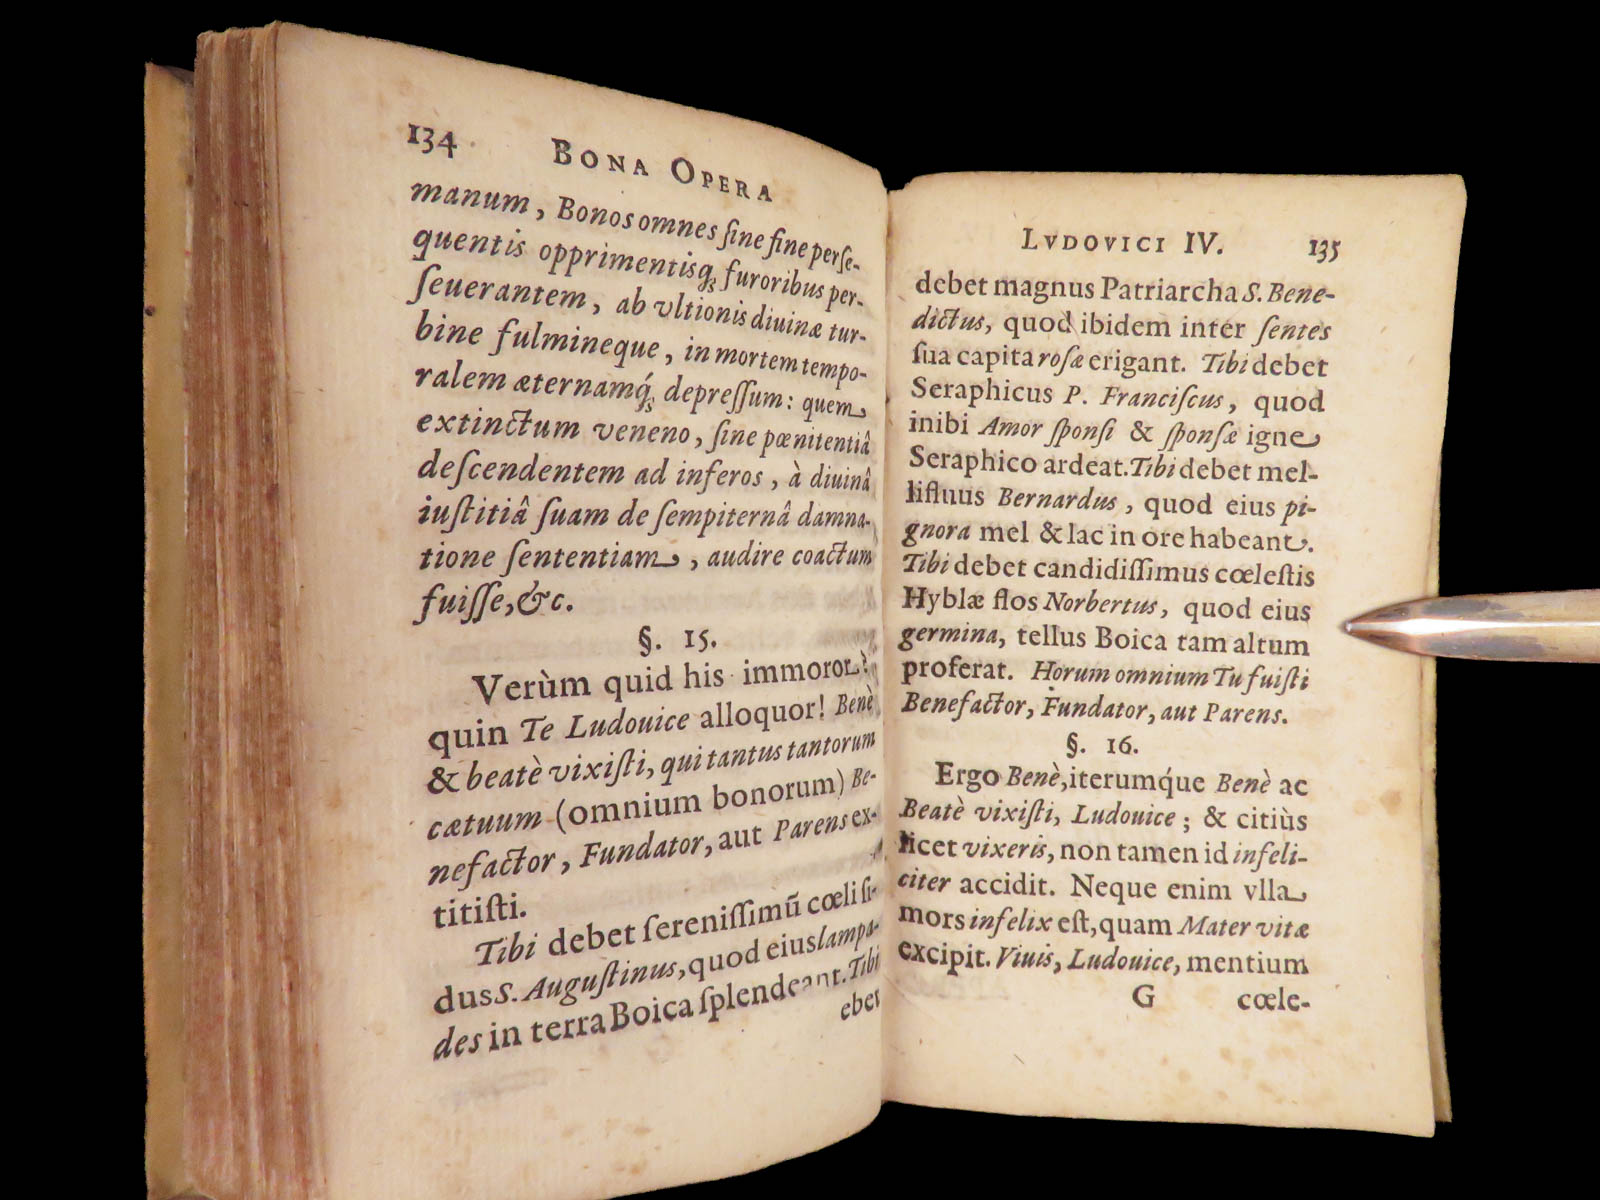 134 BONA OPERA
manum, Bonos omnes ſine fine perſe-
quentis opprimentisq́ꝫ furoribus per-
ſeuerantem, ab vltionis diuinæ tur-
bine fulmineque, in mortem tempo-
ralem æternamq́ꝫ depreſſum: quem
extinctum veneno, ſine pœnitentiâ
deſcendentem ad inferos, à diuinâ
iuſtitiâ ſuam de ſempiternâ damna-
tione ſententiam, audire coactum
fuiſſe, &c.
§. 15.
Verùm quid his immoror!
quin Te Ludouice alloquor! Benè
& beatè vixiſti, qui tantus tantorum
cætuum (omnium bonorum) Be-
nefactor, Fundator, aut Parens ex-
titiſti.
Tibi debet ſereniſſimũ cœli ſi-
dus S. Auguſtinus, quod eius lampa-
des in terra Boica ſplendeant. Tibi
ebet
LVDOVICI IV. 135
debet magnus Patriarcha S. Bene-
dictus, quod ibidem inter ſentes
ſua capita roſæ erigant. Tibi debet
Seraphicus P. Franciſcus, quod
inibi Amor ſponſi & ſponſæ igne
Seraphico ardeat. Tibi debet mel-
lifluus Bernardus, quod eius pi-
gnora mel & lac in ore habeant.
Tibi debet candidiſſimus cœleſtis
Hyblæ flos Norbertus, quod eius
germina, tellus Boica tam altum
proferat. Horum omnium Tu fuiſti
Benefactor, Fundator, aut Parens.
§. 16.
Ergo Benè, iterumq́ue Benè ac
Beatè vixiſti, Ludouice; & citiùs
licet vixeris, non tamen id infeli-
citer accidit. Neque enim vlla
mors infelix eſt, quam Mater vitæ
excipit. Viuis, Ludouice, mentium
G cœle-